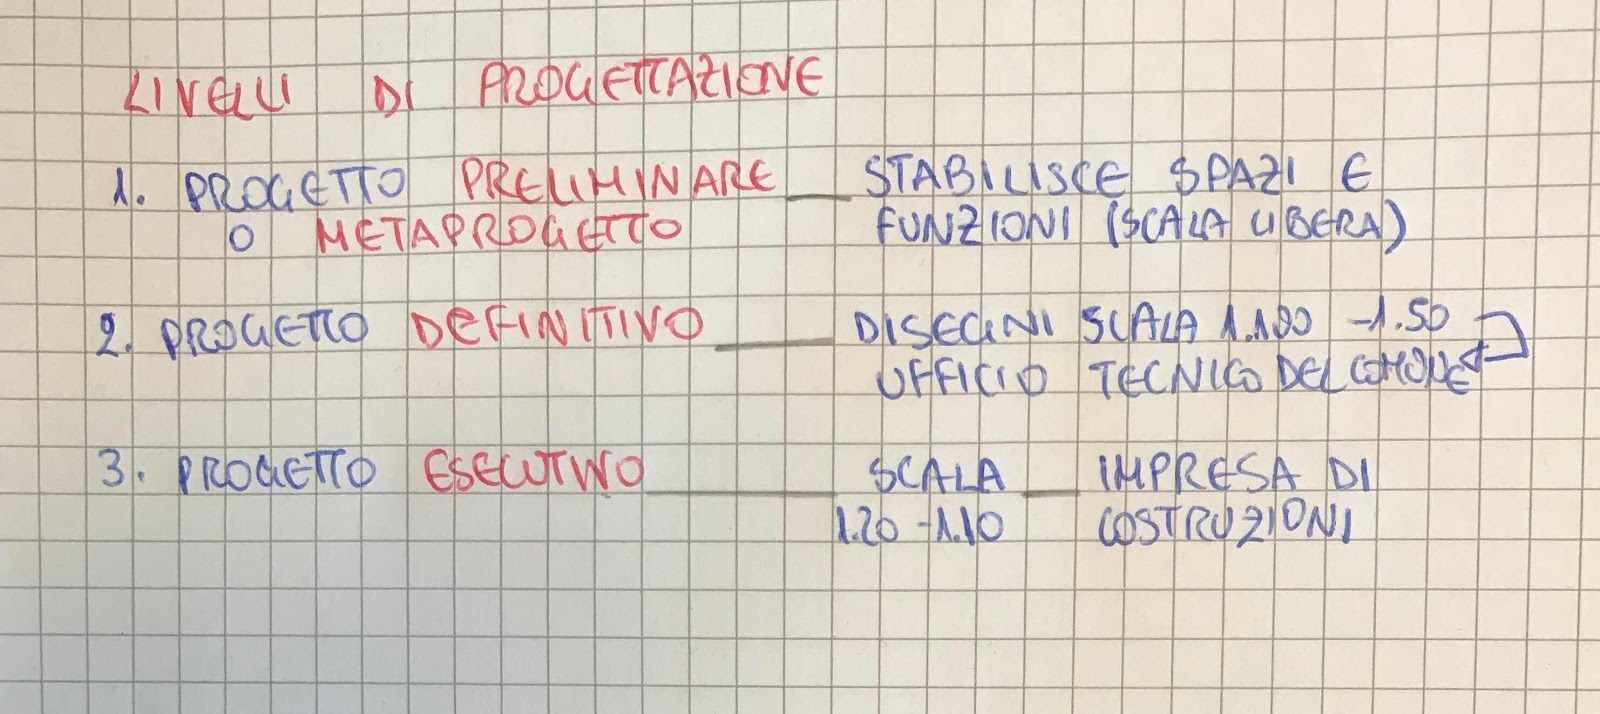 LIVELLI DI PROGETTAZIONE
1. PROGETTO PRELIMINARE STABILISCE SPAZI E
O METAPROGETTO FUNZIONI (SCALA LIBERA)
2. PROGETTO DEFINITIVO DISEGNI SCALA 1.100 -1.50
UFFICIO TECNICO DEL COMUNE
3. PROGETTO ESECUTIVO SCALA IMPRESA DI
1.20 -1.10 COSTRUZIONI